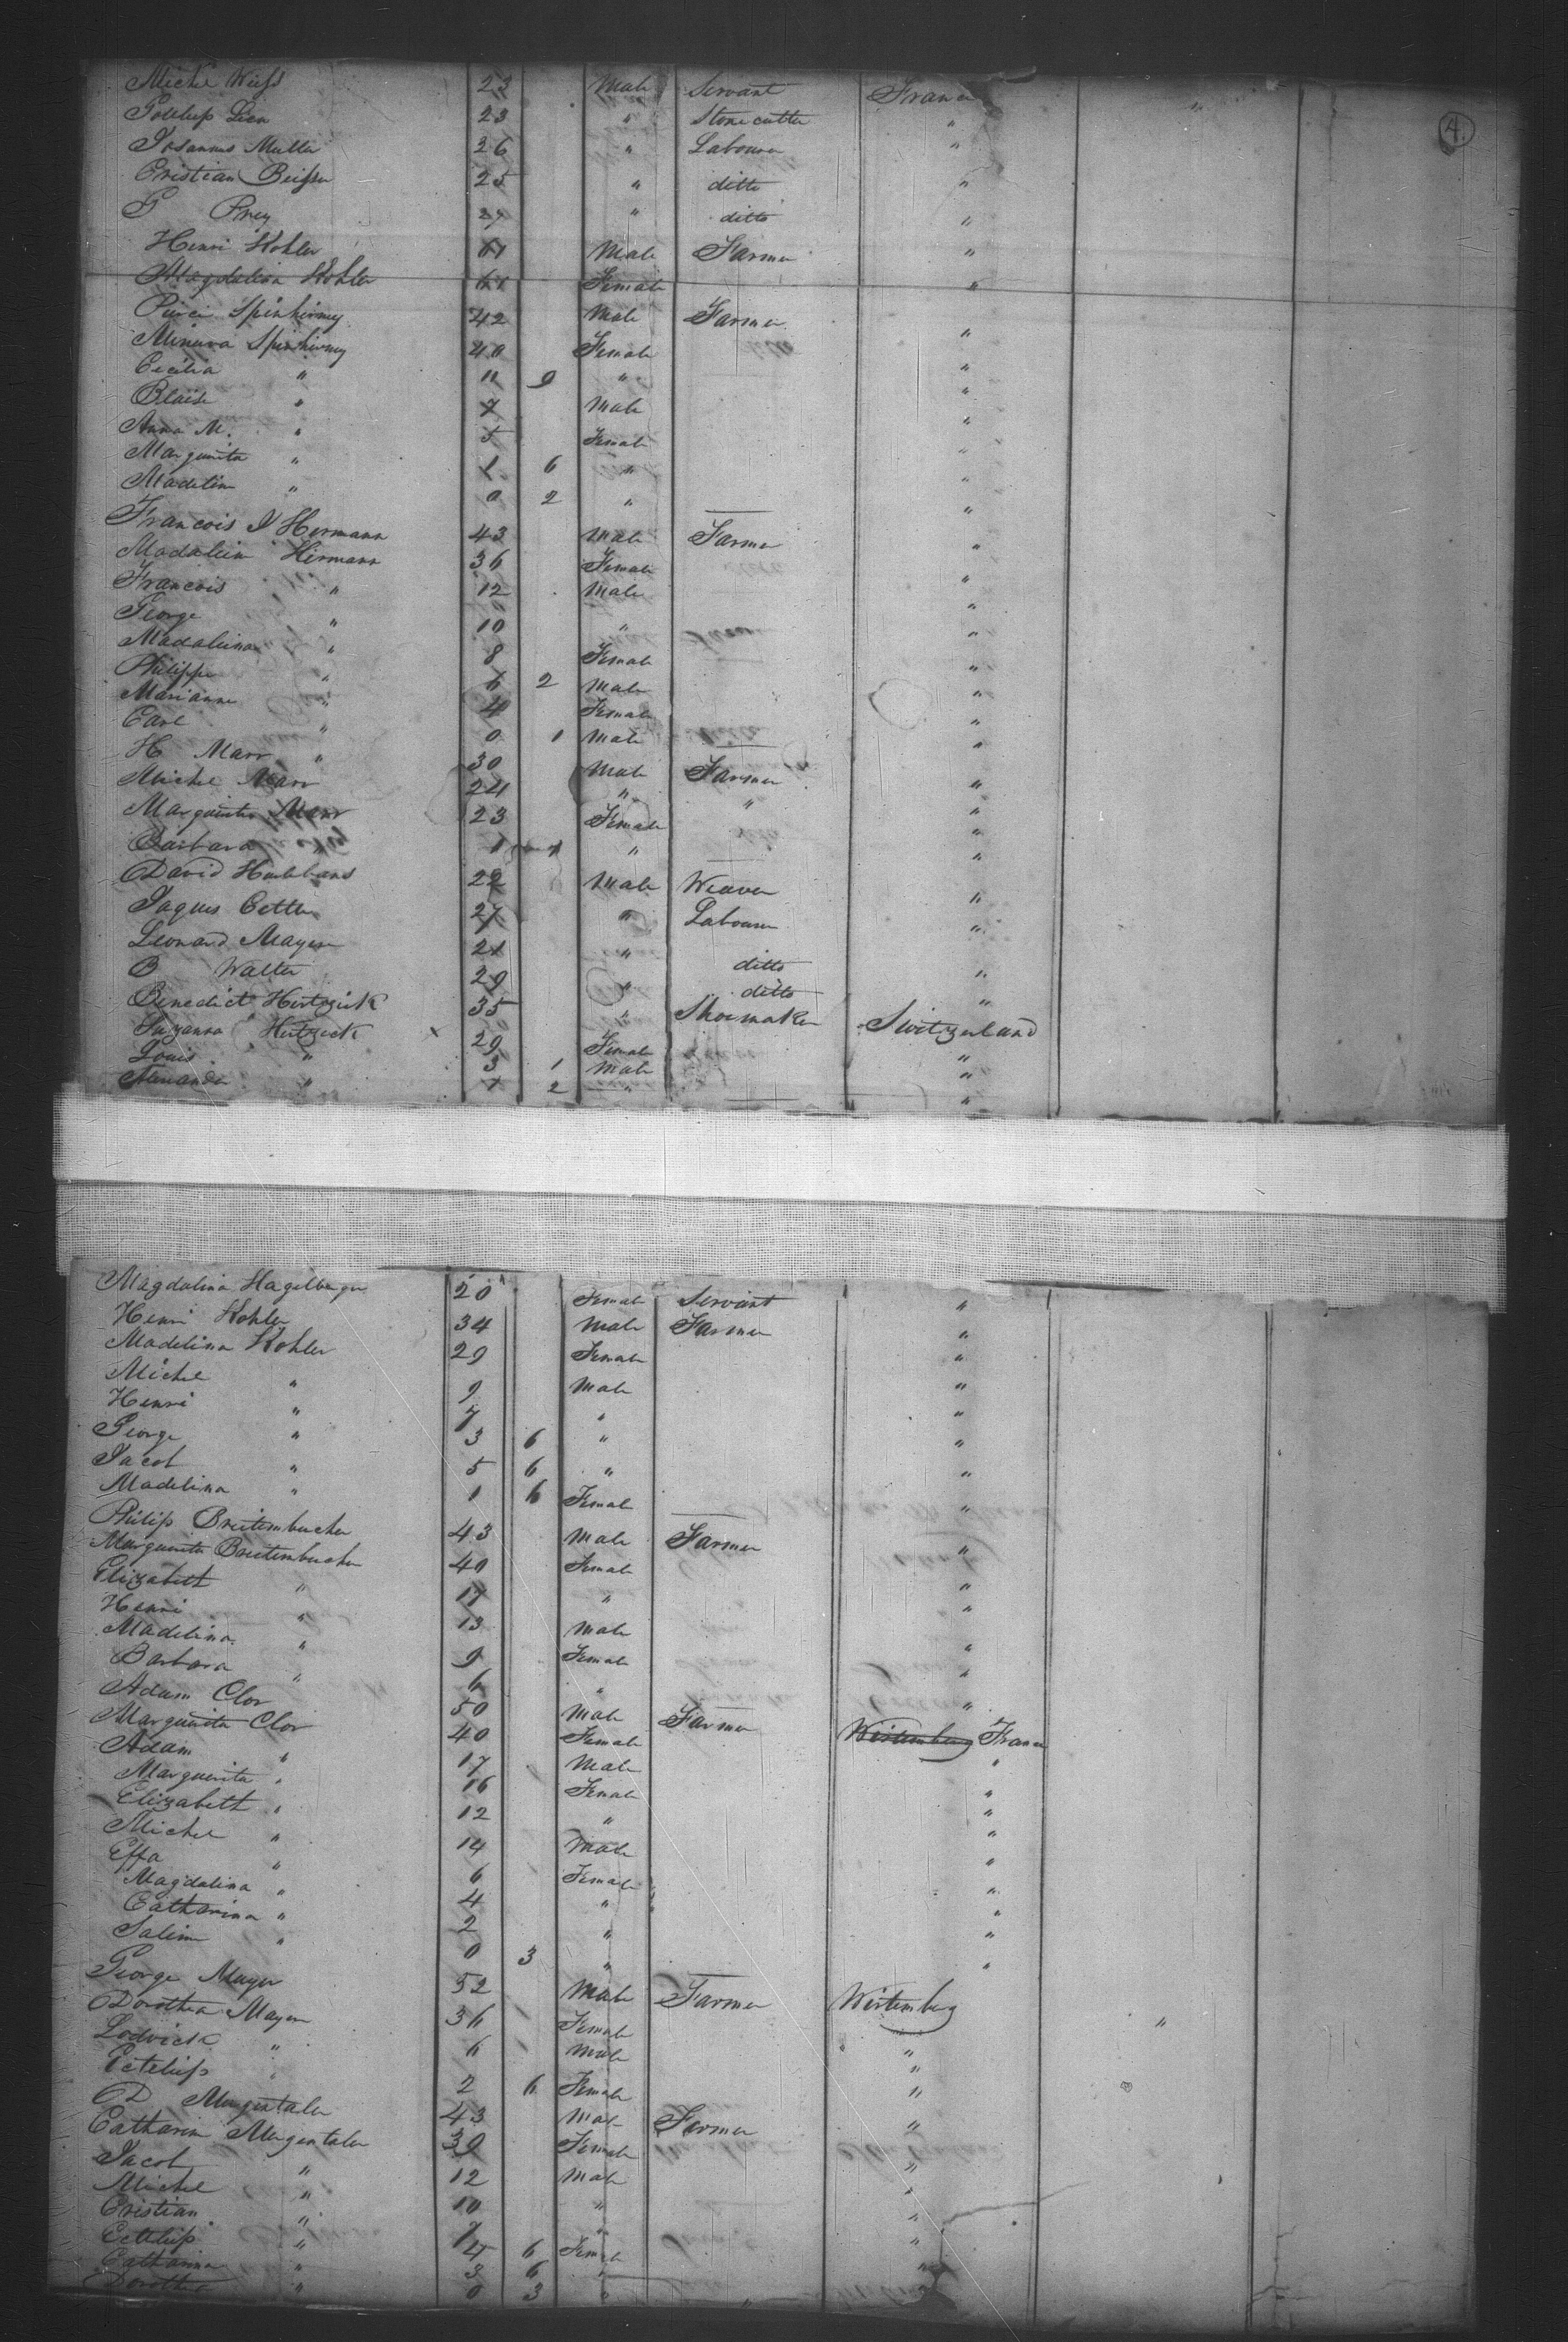 4.
Michel Weiss 23 Male Servant France
Gottlieb Lien 23 " Stone cutter "
Josannes Muller 26 " Labourer "
Cristian Beisser 25 " ditto "
G Frey 27 " ditto "
Henri Kohler 61 Male Farmer "
Magdalina Kohler 61 Female "
Pierre Spinhirney 42 Male Farmer "
Minerva Spinhirney 40 Female "
Cecilia " 11 9 " "
Blaise " 7 Male "
Anna M. " 5 Female "
Marguerita " 1 6 " "
Madelin " 0 2 " "
Francois J Hermann 43 Male Farmer "
Madalein Hermann 36 Female "
Francois " 12 Male "
George " 10 " "
Madaleina " 8 Female "
Philippe " 6 2 Male "
Marianne " 4 Female "
Carl " 0 1 Male "
H Marr 30 Male Farmer "
Michel Marr 24 " " "
Marguerita Marr 23 Female "
Barbara " 1 " "
David 22 Male Weaver "
Jaques Cetter 27 " Labourer "
Leonard Mayer 21 " ditto "
B Walter 29 " ditto "
Benedict Hertzeick 35 " Shoemaker Switzerland
Suzanna Hertzeick 29 Female "
Louis " 3 1 Male "
Alexander " 1 2 " "
Magdalina Hagelberger 20 Female Servant "
Henri Kohler 34 Male Farmer "
Madelina Kohler 29 Female "
Michel " 9 Male "
Henri " 7 " "
George " 3 6 " "
Jacob " 5 6 " "
Madelina " 1 6 Female "
Philip Breitembucher 43 Male Farmer "
Marguerita Breitembucher 40 Female "
Elizabett " 17 " "
Henri " 13 Male "
Madelina " 9 Female "
Barbara " 6 " "
Adam Clor 50 Male Farmer Wirtemberg France
Marguerita Clor 40 Female "
Adam " 17 Male "
Marguerita " 16 Female "
Elizabett " 12 " "
Michel " 14 Male "
Effa " 6 Female "
Magdalina " 4 " "
Catharina " 2 " "
Salim " 0 3 " "
George Mayer 52 Male Farmer Wirtemberg
Dorothea Mayer 36 Female " "
Lodvick " 6 Male "
Ectelup " 2 6 Female "
D Mergentaler 43 Male Farmer "
Catharin Mergentaler 39 Female "
Jacob " 12 Male "
Michel " 10 " "
Cristian " 7 " "
Ectelup " 4 6 Female "
Catharina " 3 6 " "
Dorothea " 0 3 "